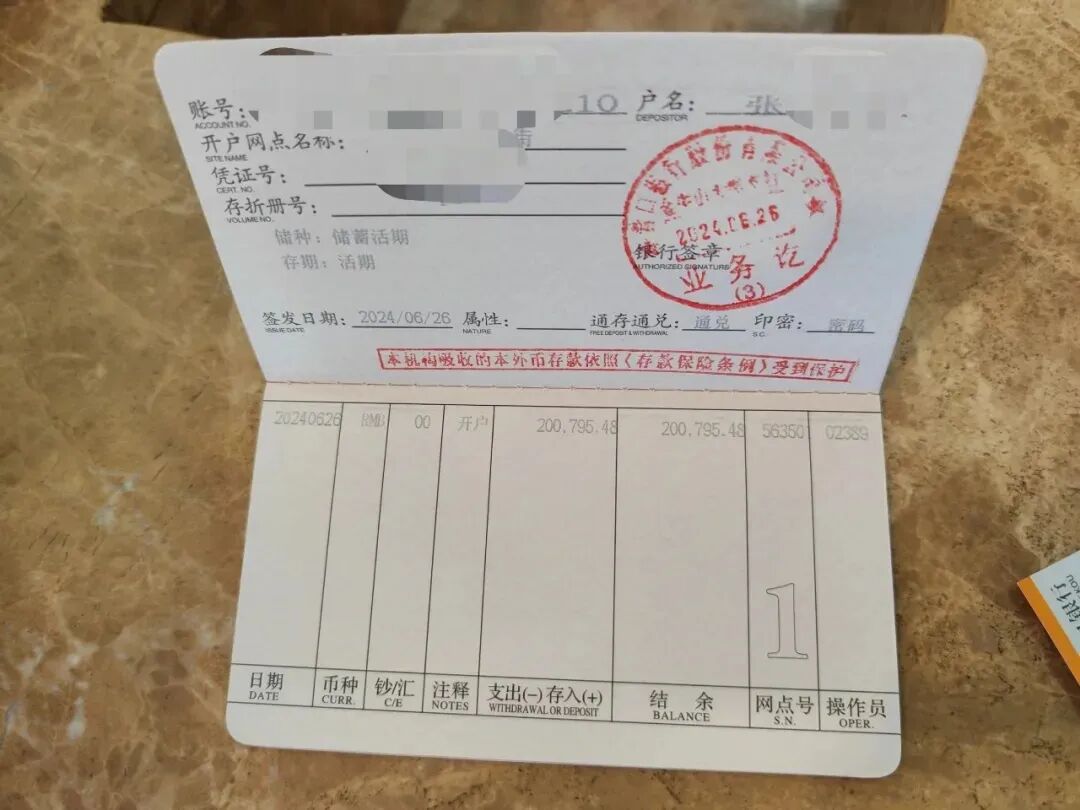 账号: 10 户名: 张
ACCOUNT NO. DEPOSITOR
开户网点名称: 街
SITE NAME
凭证号:
CERT. NO.
存折册号:
VOLUME NO.
储种: 储蓄活期
存期: 活期
营口银行股份有限公司
2024.06.26
业务讫
(3)
银行签章
AUTHORIZED SIGNATURE
签发日期: 2024/06/26 属性: 通存通兑: 通兑 印密: 密码
ISSUE DATE NATURE FREE DEPOSIT & WITHDRAWAL S.C.
本机构吸收的本外币存款依照《存款保险条例》受到保护
20240626 RMB 00 开户 200,795.48 200,795.48 56350 02389
1
日期 币种 钞/汇 注释 支出(-)存入(+) 结余 网点号 操作员
DATE CURR. C/E NOTES WITHDRAWAL OR DEPOSIT BALANCE S.N. OPER.
银行
KOU